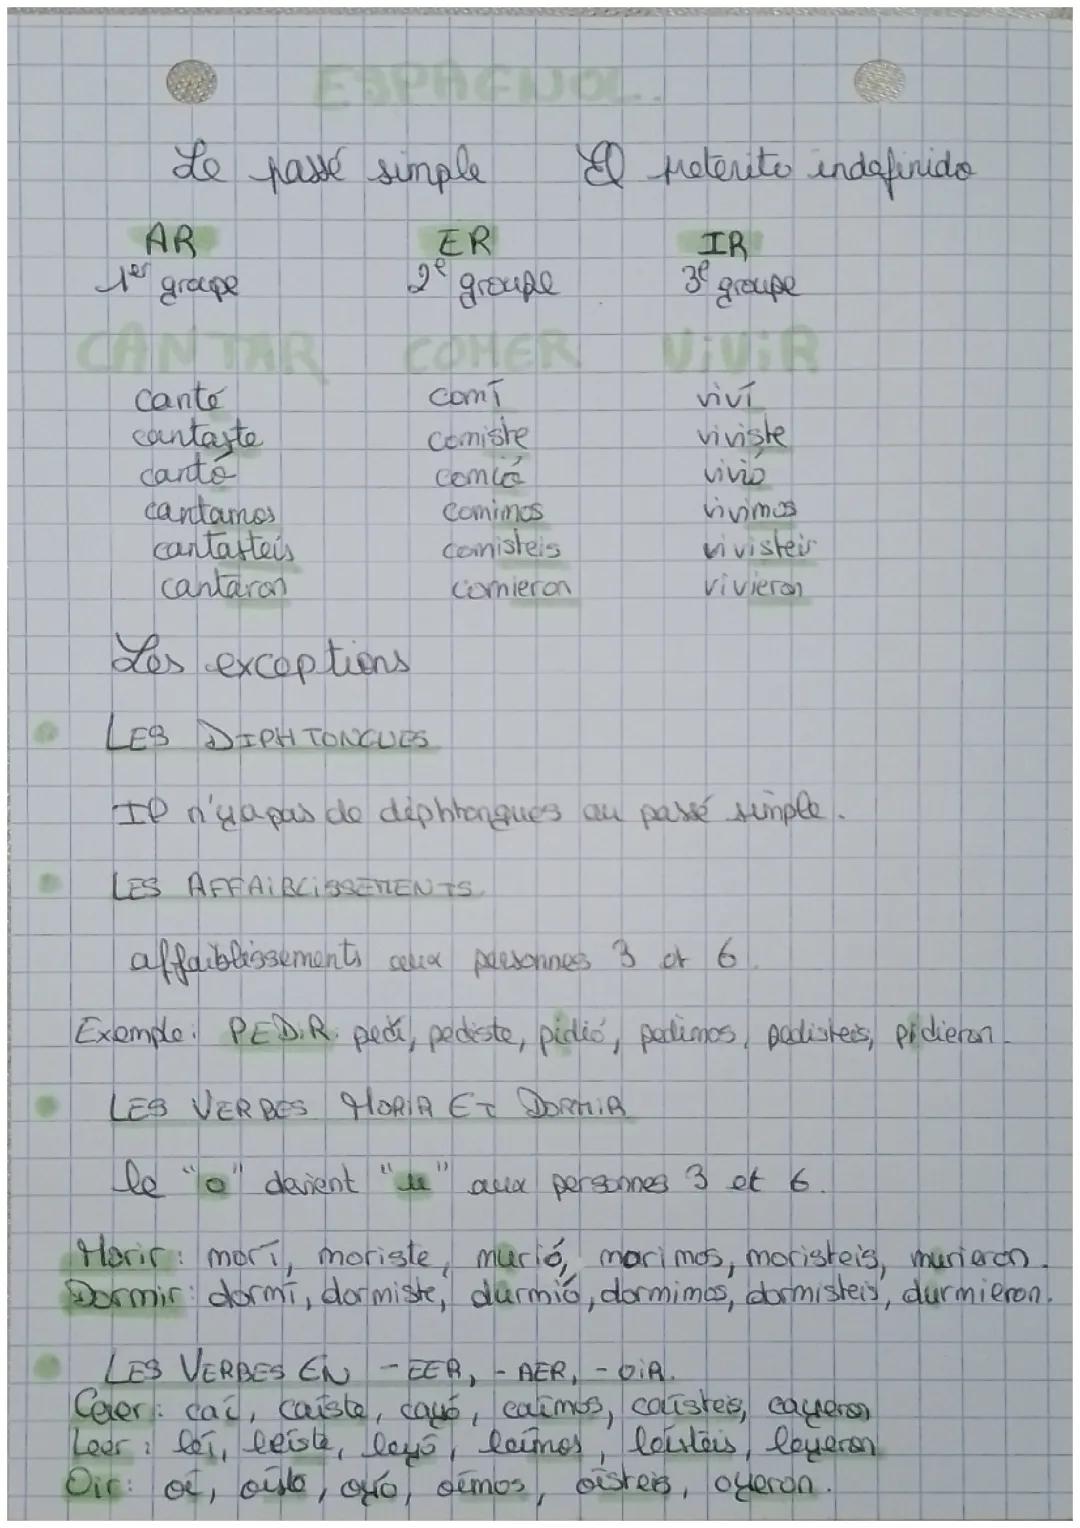 ESPAGNOL.
Le passé simple El preterito indefinido
AR ER IR
1er groupe 2e groupe 3e groupe
CANTAR COMER ViViR
canté comí viví
cantaste comiste viviste
cantó comió vivió
cantamos comimos vivimos
cantasteis comisteis vivisteis
cantaron comieron vivieron
Les exceptions
LES DIPHTONGUES
Il n'y a pas de diphtongues au passé simple.
LES AFFAIBLISSEMENTS
affaiblissements aux personnes 3 et 6.
Exemple: PEDIR: pedí, pediste, pidió, pedimos, pedisteis, pidieron.
LES VERBES MORIR ET DORMIR
le "o" devient "u" aux personnes 3 et 6.
Morir: morí, moriste, murió, morimos, moristeis, murieron.
Dormir: dormí, dormiste, durmió, dormimos, dormisteis, durmieron.
LES VERBES EN -EER, -AER, -OIR.
Caer: caí, caíste, cayó, caímos, caísteis, cayeron
Leer: leí, leíste, leyó, leímos, leísteis, leyeron
Oir: oí, oíste, oyó, oímos, oísteis, oyeron.